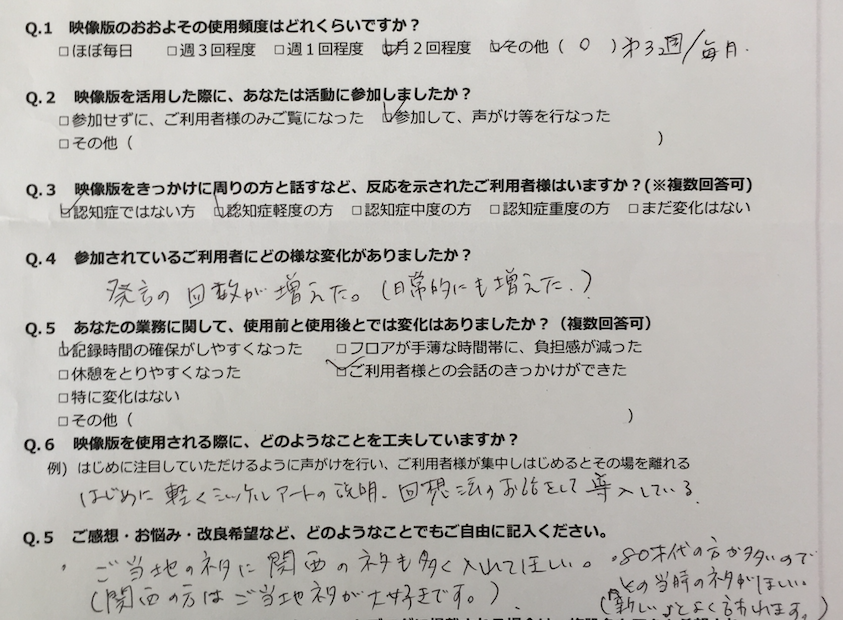 Q.1 映像版のおおよその使用頻度はどれくらいですか？
□ほぼ毎日 □週３回程度 □週１回程度 ☑月２回程度 ☑その他（ 0 ）第3週/毎月.
Q.2 映像版を活用した際に、あなたは活動に参加しましたか？
□参加せずに、ご利用者様のみご覧になった ☑参加して、声がけ等を行なった
□その他（ ）
Q.3 映像版をきっかけに周りの方と話すなど、反応を示されたご利用者様はいますか？(※複数回答可)
☑認知症ではない方 ☑認知症軽度の方 □認知症中度の方 □認知症重度の方 □まだ変化はない
Q.4 参加されているご利用者にどの様な変化がありましたか？
発言の回数が増えた。（日常的にも増えた.）
Q.5 あなたの業務に関して、使用前と使用後とでは変化はありましたか？（複数回答可）
☑記録時間の確保がしやすくなった □フロアが手薄な時間帯に、負担感が減った
□休憩をとりやすくなった ☑ご利用者様との会話のきっかけができた
□特に変化はない
□その他（ ）
Q.6 映像版を使用される際に、どのようなことを工夫していますか？
例）はじめに注目していただけるように声がけを行い、ご利用者様が集中しはじめるとその場を離れる
はじめに軽くシッケルアートの説明、回想法のお話をして導入している.
Q.5 ご感想・お悩み・改良希望など、どのようなことでもご自由に記入ください。
・ご当地のネタに関西のネタも多く入れてほしい。
（関西の方はご当地ネタが大好きです。）
・80末代の方が多いので
その当時のネタがほしい.
（「新しい」とよく言われます。）